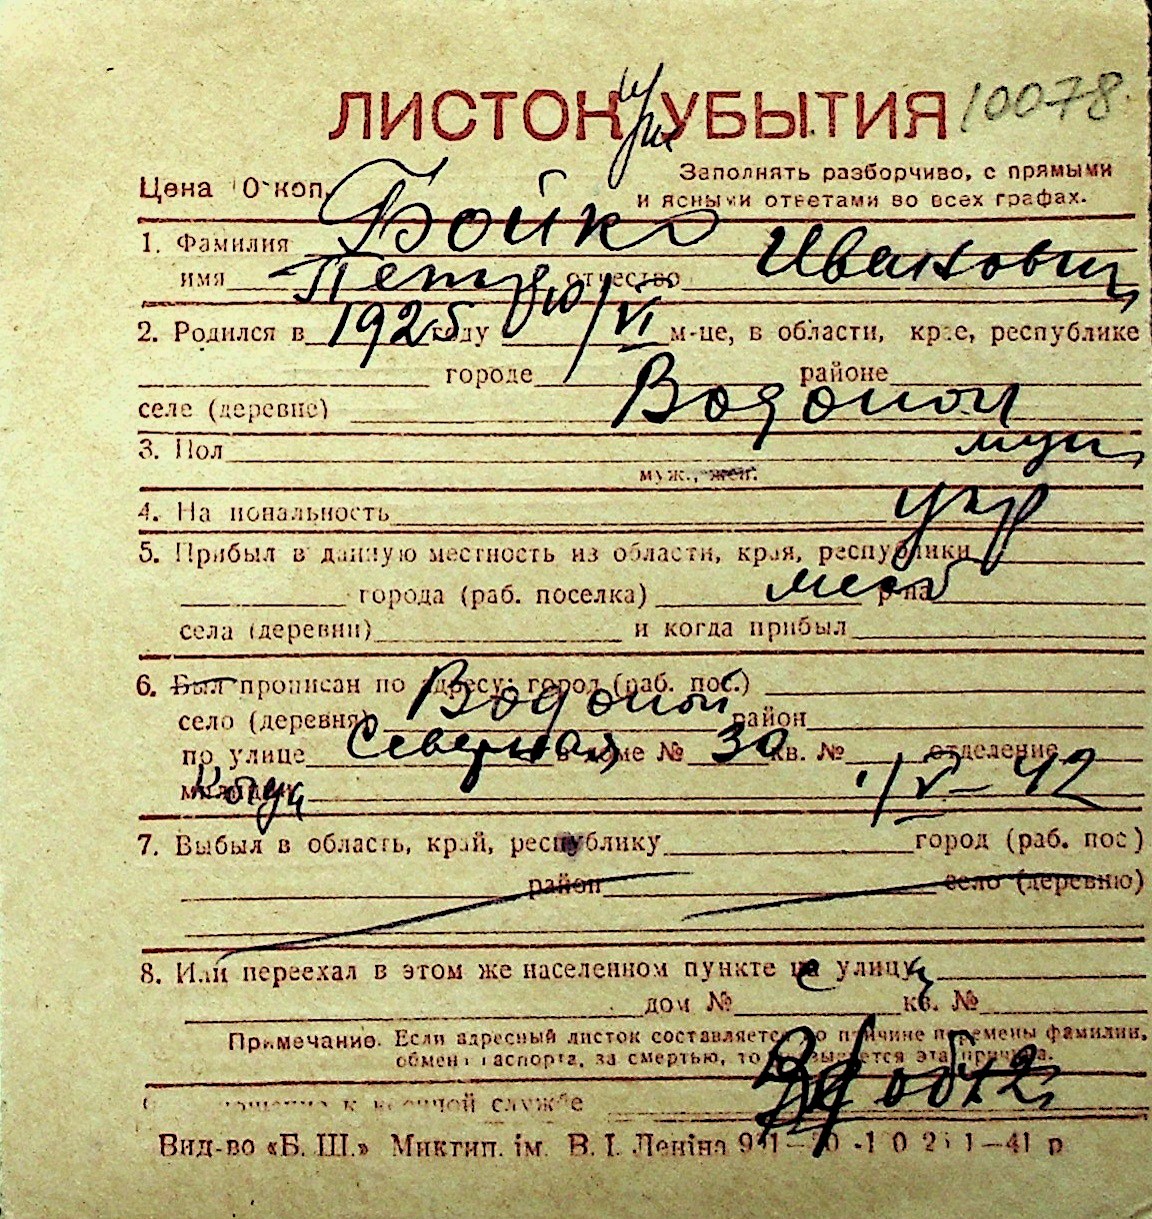 ЛИСТОК УБЫТИЯ 10078
Цена 10 коп. Заполнять разборчиво, с прямыми
и ясными ответами во всех графах.
1. Фамилия Бойко
имя Петр отчество Иванович
2. Родился в 1925 году 10/VI м-це, в области, крае, республике
городе районе
селе (деревне) Водопой
3. Пол муж
муж., жен.
4. Национальность укр
5. Прибыл в данную местность из области, края, республики
города (раб. поселка) мест р-на
села (деревни) и когда прибыл
6. Был прописан по адресу: город (раб. пос.)
село (деревня) Водопой район
по улице Северная в доме № 30 кв. № отделение
милиции 1/V-42
7. Выбыл в область, край, республику город (раб. пос.)
район село (деревню)
8. Или переехал в этом же населенном пункте на улицу
дом № кв. №
Примечание. Если адресный листок составляется по причине перемены фамилии,
обмена паспорта, за смертью, то указывается эта причина.
к военной службе
Вид-во «Б. Ш.» Миктип. ім. В. І. Леніна